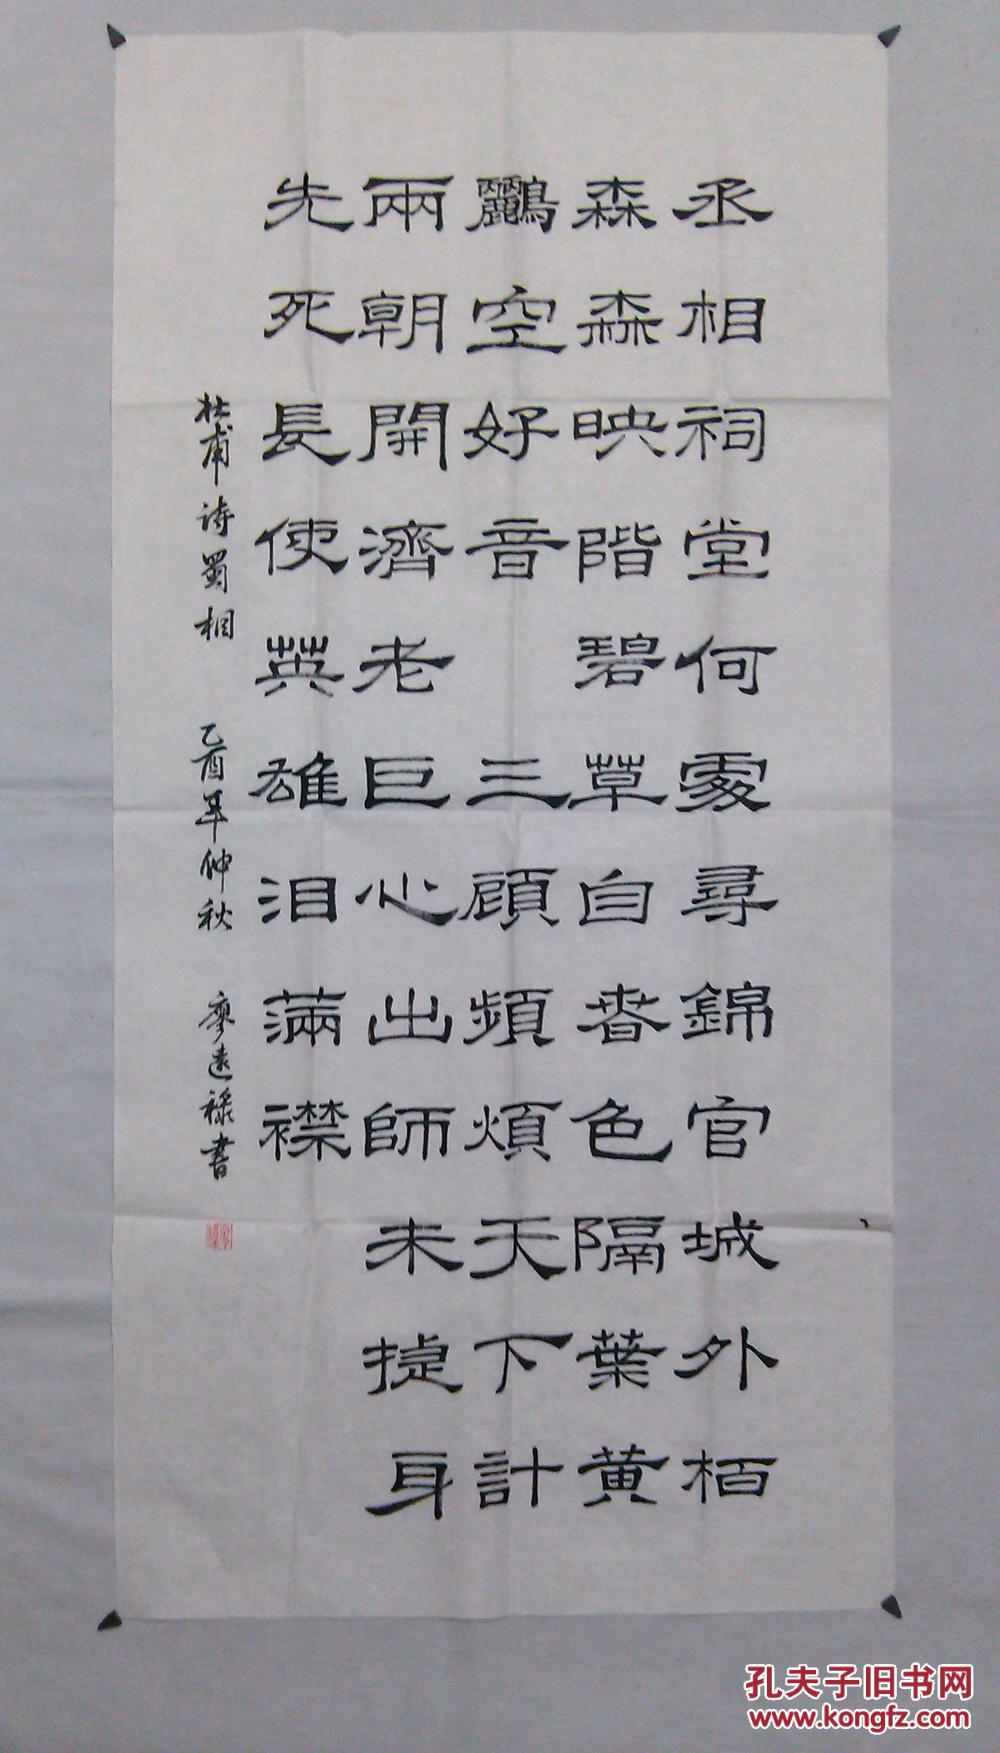 丞相祠堂何處尋錦官城外栢
森森映階碧草自春色隔葉黄
鸝空好音三顧頻煩天下計
兩朝開濟老巨心出師未捷身
先死長使英雄泪滿襟
杜甫诗蜀相 乙酉年仲秋 廖远禄書
孔夫子旧书网
www.kongfz.com